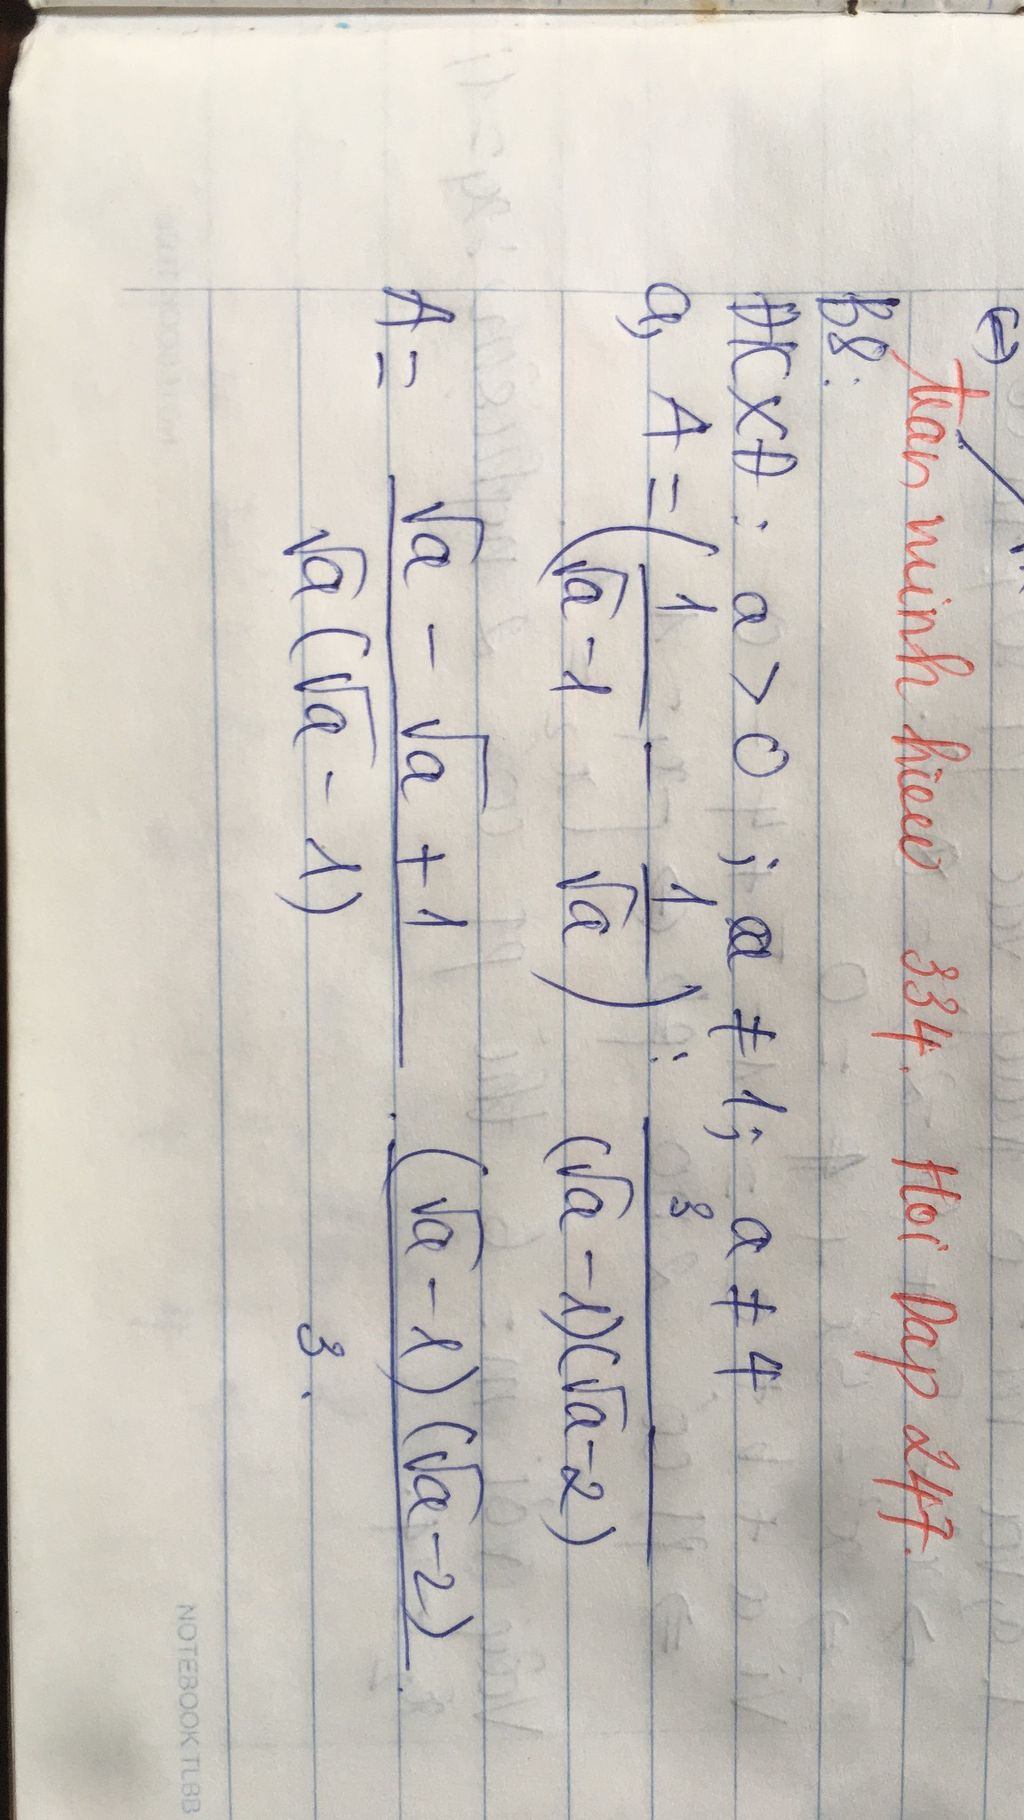 (=)
tran minh hieu 334. Hoi Dap 247.
B8:
ĐKXĐ: a > 0; a ≠ 1; a ≠ 4
a, A = (1/(√a - 1) - 1/√a) : 3/((√a - 1)(√a - 2))
A = (√a - √a + 1)/(√a(√a - 1)) · ((√a - 1)(√a - 2))/3.
NOTEBOOK TLBB